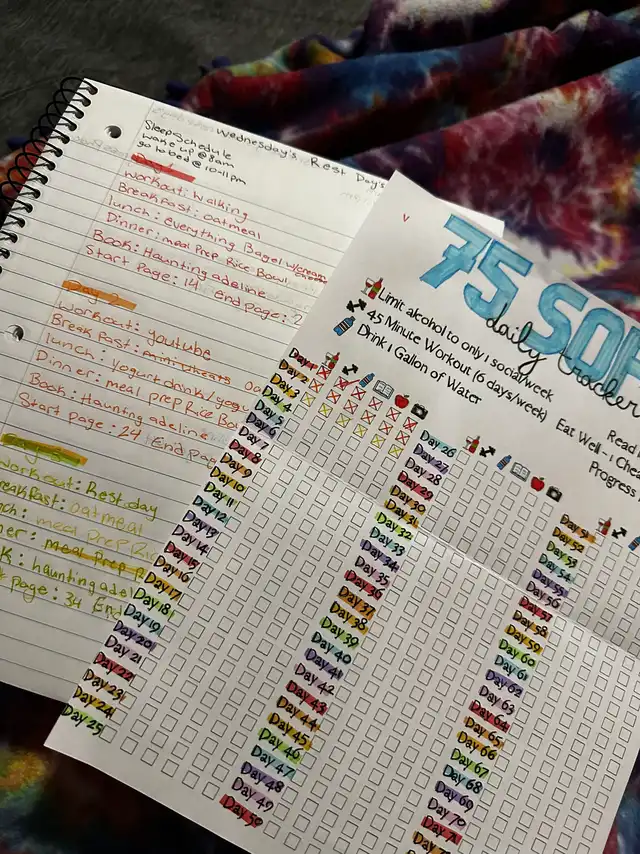 Wednesday's Rest Day's
Sleep Schedule
wake up @ 8am
go to bed @ 10-11pm
Day 1
Workout: Walking
Breakfast: oatmeal
lunch: everything Bagel w/cream
Dinner: meal Prep Rice Bowl
Book: Haunting adeline
Start page: 14 end page: 2
Day 2
Workout: youtube
Breakfast: mini wheats
lunch: yogurt drink/
Dinner: meal prep Rice Bo
Book: Haunting adeline
Start page: 24 End pa
Workout: Rest day
Breakfast: oatmeal
meal Prep Ric
meal Prep
haunting adel
page: 34 End
V
75 SOF
daily tracker
Limit alcohol to only 1 social/week
45 Minute Workout (6 days/week)
Drink 1 Gallon of Water
Read
Eat Well - 1 Chea
Progress
Day 1
Day 2
Day 3
Day 4
Day 5
Day 6
Day 7
Day 8
Day 9
Day 10
Day 11
Day 12
Day 13
Day 14
Day 15
Day 16
Day 17
Day 18
Day 19
Day 20
Day 21
Day 22
Day 23
Day 24
Day 25
Day 26
Day 27
Day 28
Day 29
Day 30
Day 31
Day 32
Day 33
Day 34
Day 35
Day 36
Day 37
Day 38
Day 39
Day 40
Day 41
Day 42
Day 43
Day 44
Day 45
Day 46
Day 47
Day 48
Day 49
Day 50
Day 51
Day 52
Day 53
Day 54
Day 55
Day 56
Day 57
Day 58
Day 59
Day 60
Day 61
Day 62
Day 63
Day 64
Day 65
Day 66
Day 67
Day 68
Day 69
Day 70
Day 71